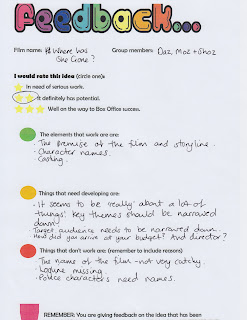 feedback...
Film name: # Where has
She Gone?
Group members: Daz, Moz + Shaz
I would rate this idea (circle one):
In need of serious work.
It definitely has potential.
Well on the way to Box Office success.
The elements that work are:
· The premise of the film and storyline.
· Character names.
· Casting.
Things that need developing are:
· It seems to be 'really' about a lot of
things! Key themes should be narrowed
down.
· Target audience needs to be narrowed down.
· How did you arrive at your budget? And director?
Things that don't work are: (remember to include reasons)
· The name of the film - not very catchy.
· Logline missing.
· Police characters need names.
REMEMBER: You are giving feedback on the idea that has been